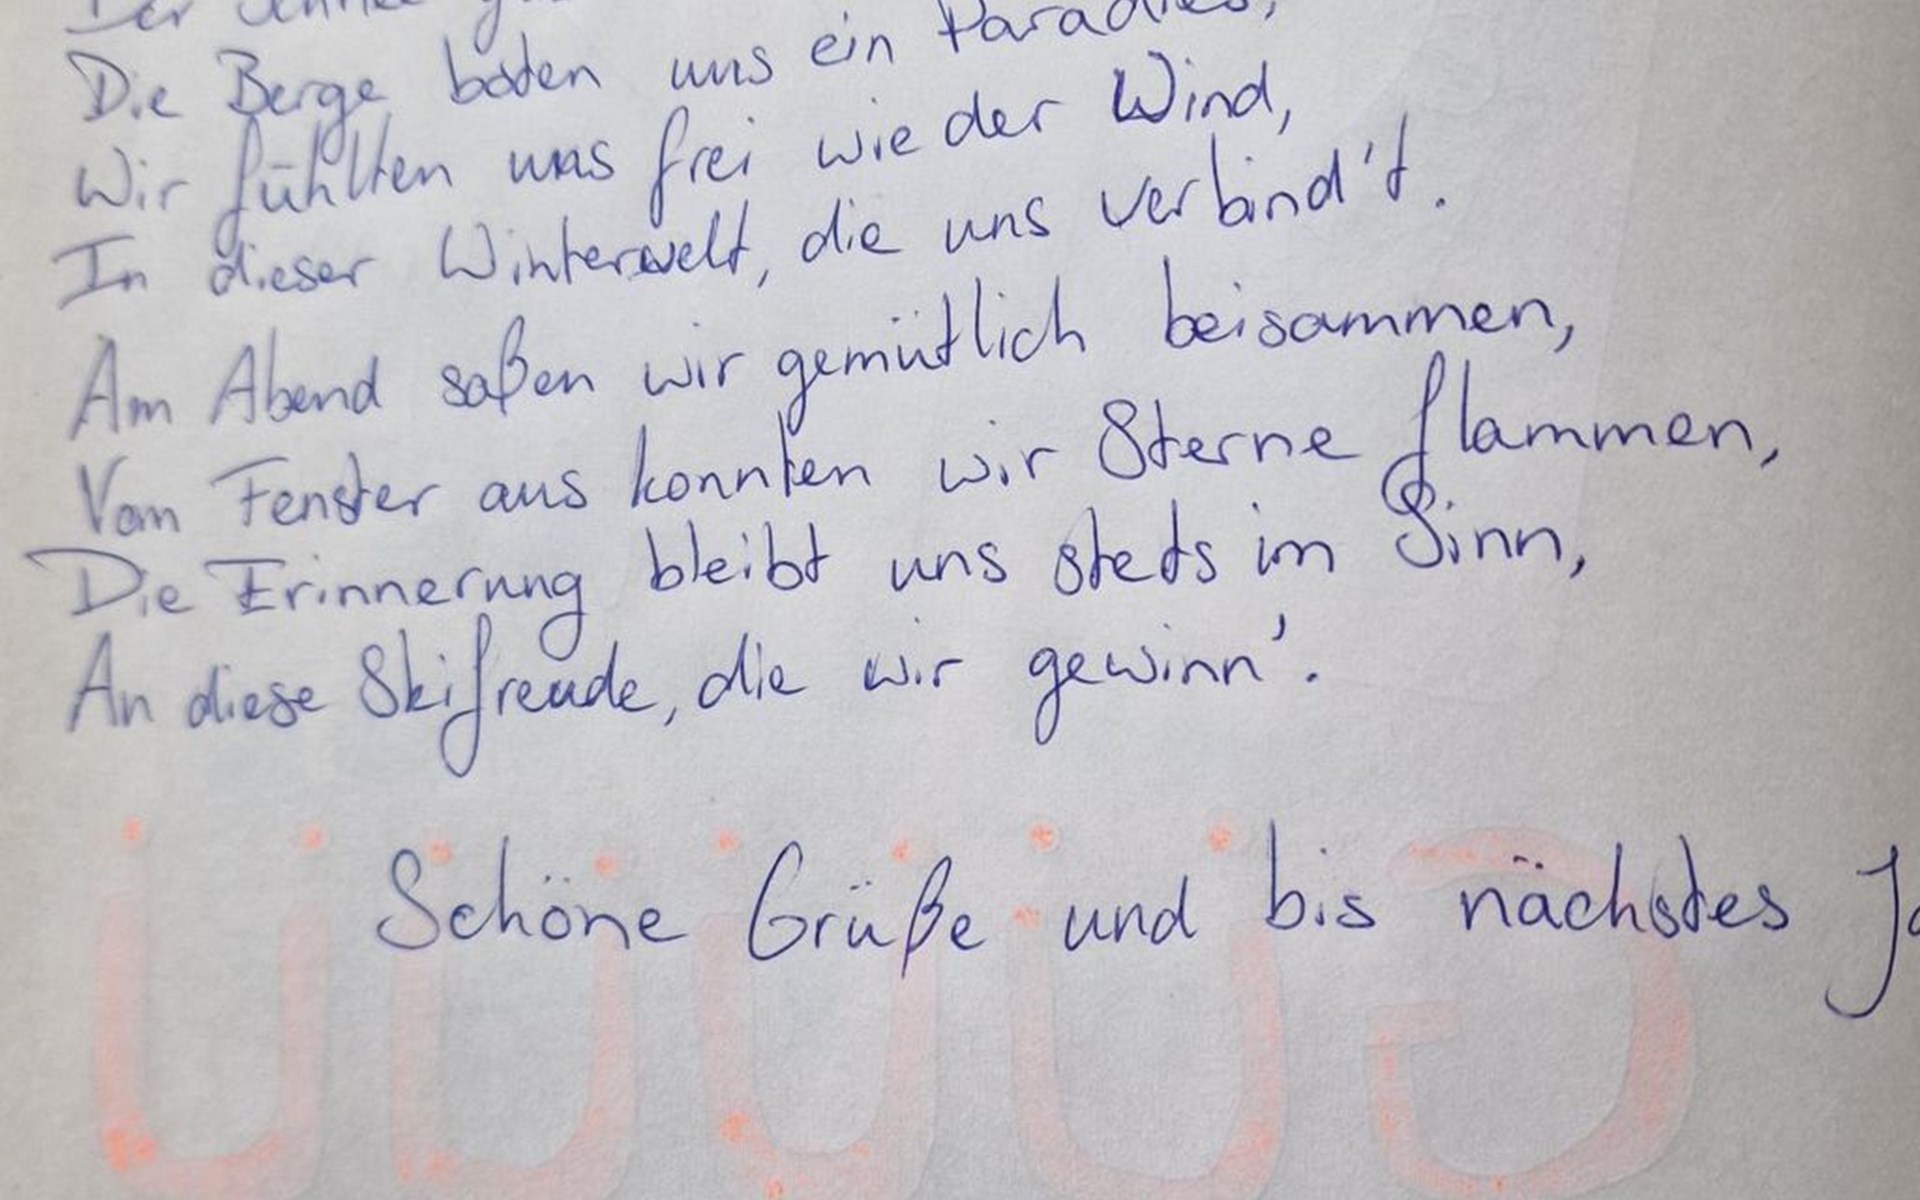 Der Schnee
Die Berge boten uns ein Paradies,
Wir fühlten uns frei wie der Wind,
In dieser Winterwelt, die uns verbind't.
Am Abend saßen wir gemütlich beisammen,
Vom Fenster aus konnten wir Sterne flammen,
Die Erinnerung bleibt uns stets im Sinn,
An diese Skifreude, die wir gewinn'.
Schöne Grüße und bis nächstes